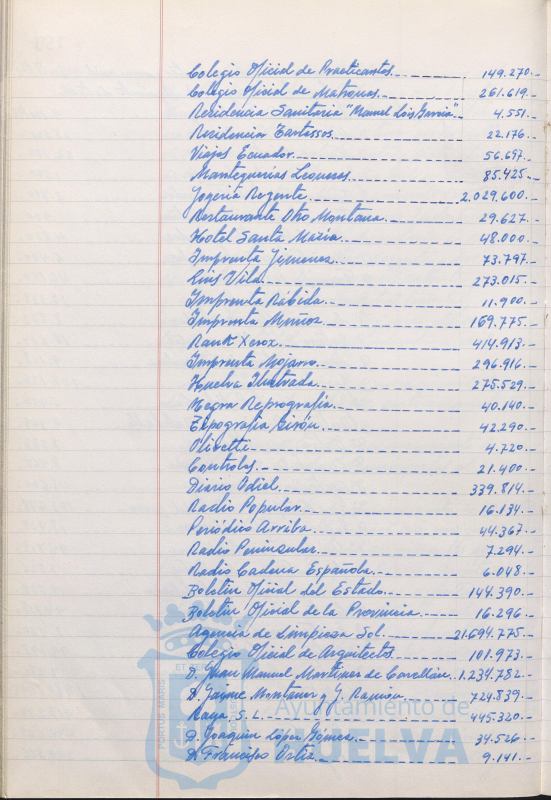 Colegio Oficial de Practicantes 149.270.-
Colegio Oficial de Matronas 261.619.-
Residencia Sanitaria "Manuel Lois García" 4.551.-
Residencia Tartessos 22.176.-
Viajes Ecuador 56.657.-
Mantequerías Leonesas 85.425.-
Joyería Regente 2.029.600.-
Restaurante Otto Montana 29.627.-
Hotel Santa María 48.000.-
Imprenta Jimenez 73.797.-
Luis Vila 273.015.-
Imprenta Rábida 11.900.-
Imprenta Muñoz 169.775.-
Rank Xerox 414.913.-
Imprenta Mojarro 296.916.-
Huelva Ilustrada 275.529.-
Negra Reprografía 40.140.-
Tipografía Girón 42.290.-
Olivetti 4.720.-
Controles 21.400.-
Diario Odiel 339.814.-
Radio Popular 16.134.-
Periódico Arriba 44.367.-
Radio Peninsular 7.294.-
Radio Cadena Española 6.048.-
Boletín Oficial del Estado 144.390.-
Boletín Oficial de la Provincia 16.296.-
Agencia de Limpieza Sol 21.694.775.-
Colegio Oficial de Arquitectos 101.973.-
D. Juan Manuel Martínez de Carellán 1.234.752.-
D. Jaume Montaner y J. 724.839.-
Raya, S.L. 445.320.-
D. Joaquín López Gómez 34.526.-
D. Francisco Ortiz 9.141.-
PORTUS MARIS
ET
Ayuntamiento de
HUELVA